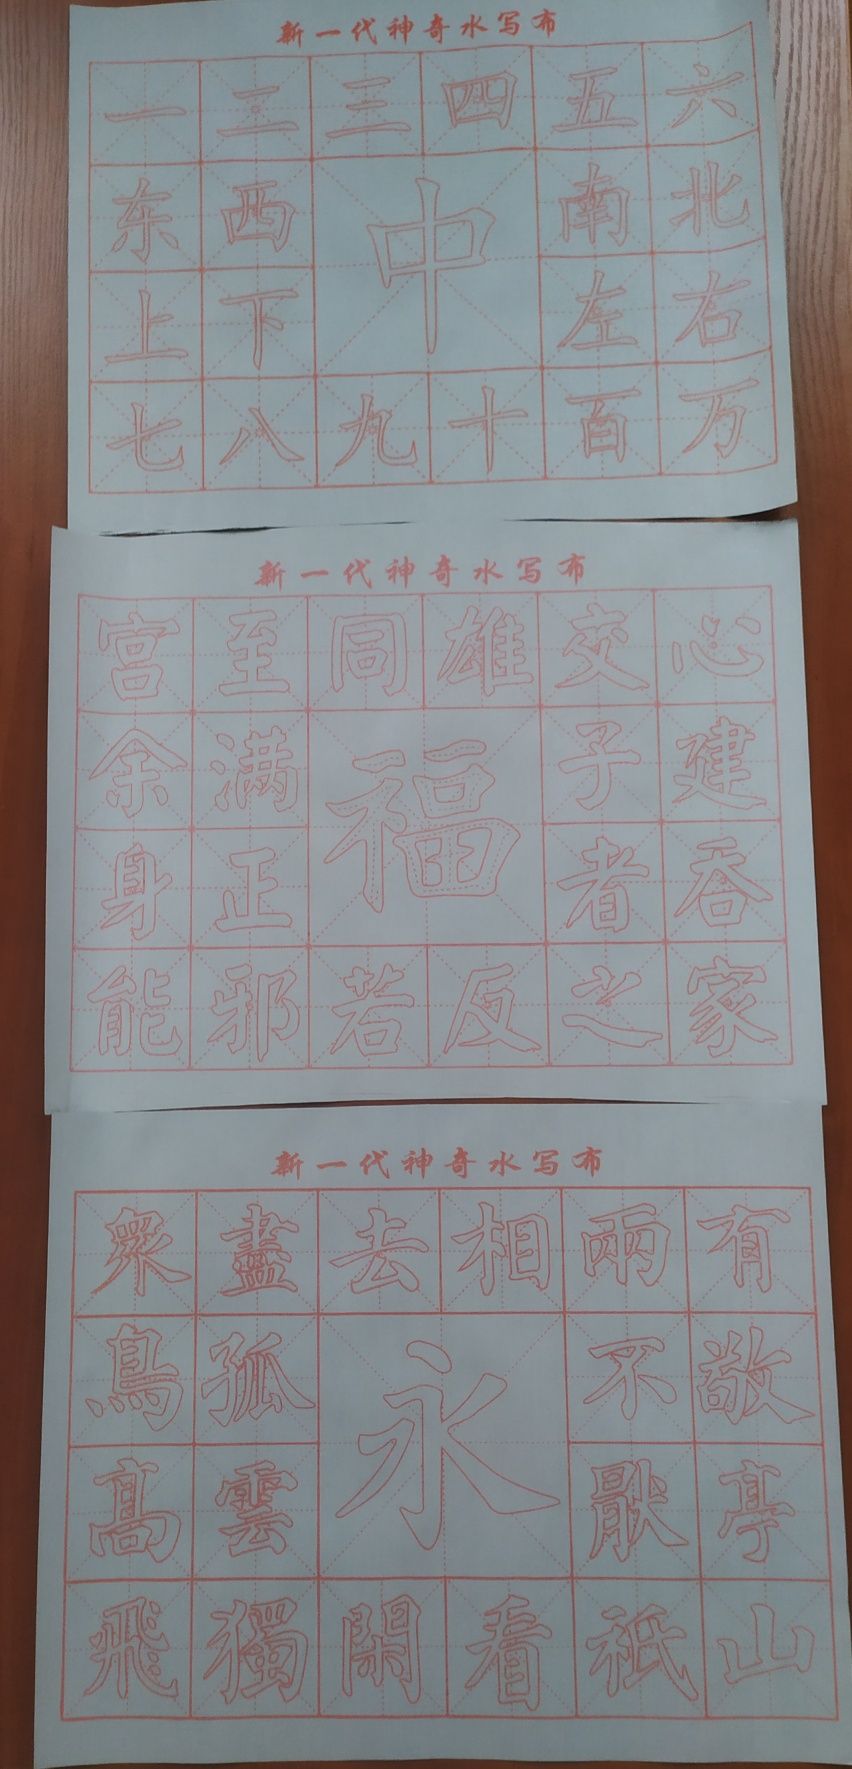 新一代神奇水写布
一二三四五六
东西中南北
上下左右
七八九十百万
新一代神奇水写布
宫至同雄交心
余满福子建
身正者吞
能邪若反之家
新一代神奇水写布
眾盡去相兩有
鳥孤永不敬亭
高雲厭亭
飛獨閑看祇山